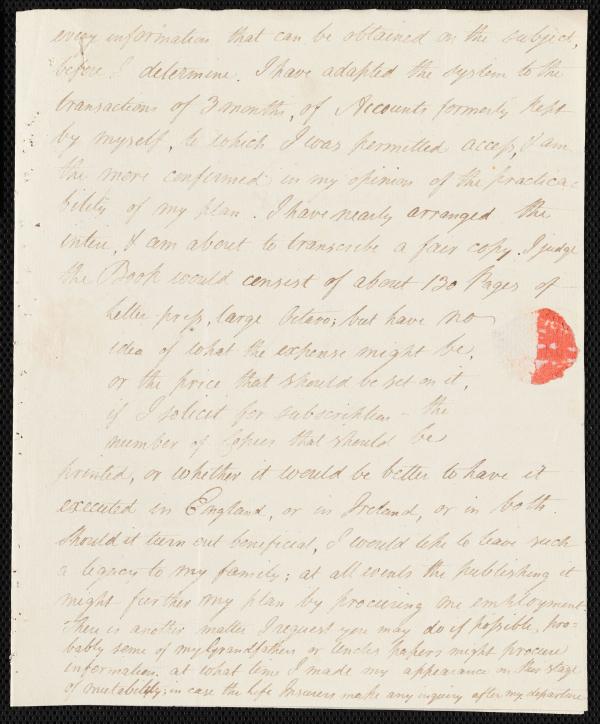 every information that can be obtained on the subject,
before I determine. I have adapted the system to the
transactions of 3 months, of Accounts formerly kept
by myself, to which I was permitted access, & am
the more confirmed in my opinion of the practica-
bility of my plan. I have nearly arranged the
entire, & am about to transcribe a fair copy. I judge
the Book would consist of about 130 Pages of
letter press, large Octavo; but have no
idea of what the expense might be,
or the price that should be set on it,
if I solicit for subscription - the
number of Copies that should be
printed, or whether it would be better to have it
executed in England, or in Ireland, or in both.
Should it turn out beneficial, I would like to leave such
a legacy to my family; at all events the publishing it
might further my plan by procuring me employment.
There is another matter I request you may do if possible, pro-
bably some of my Grandfathers or Uncles papers might procure
information. at what time I made my appearance on this stage
of mutability; in case the Life Insurers make any inquiry after my departure